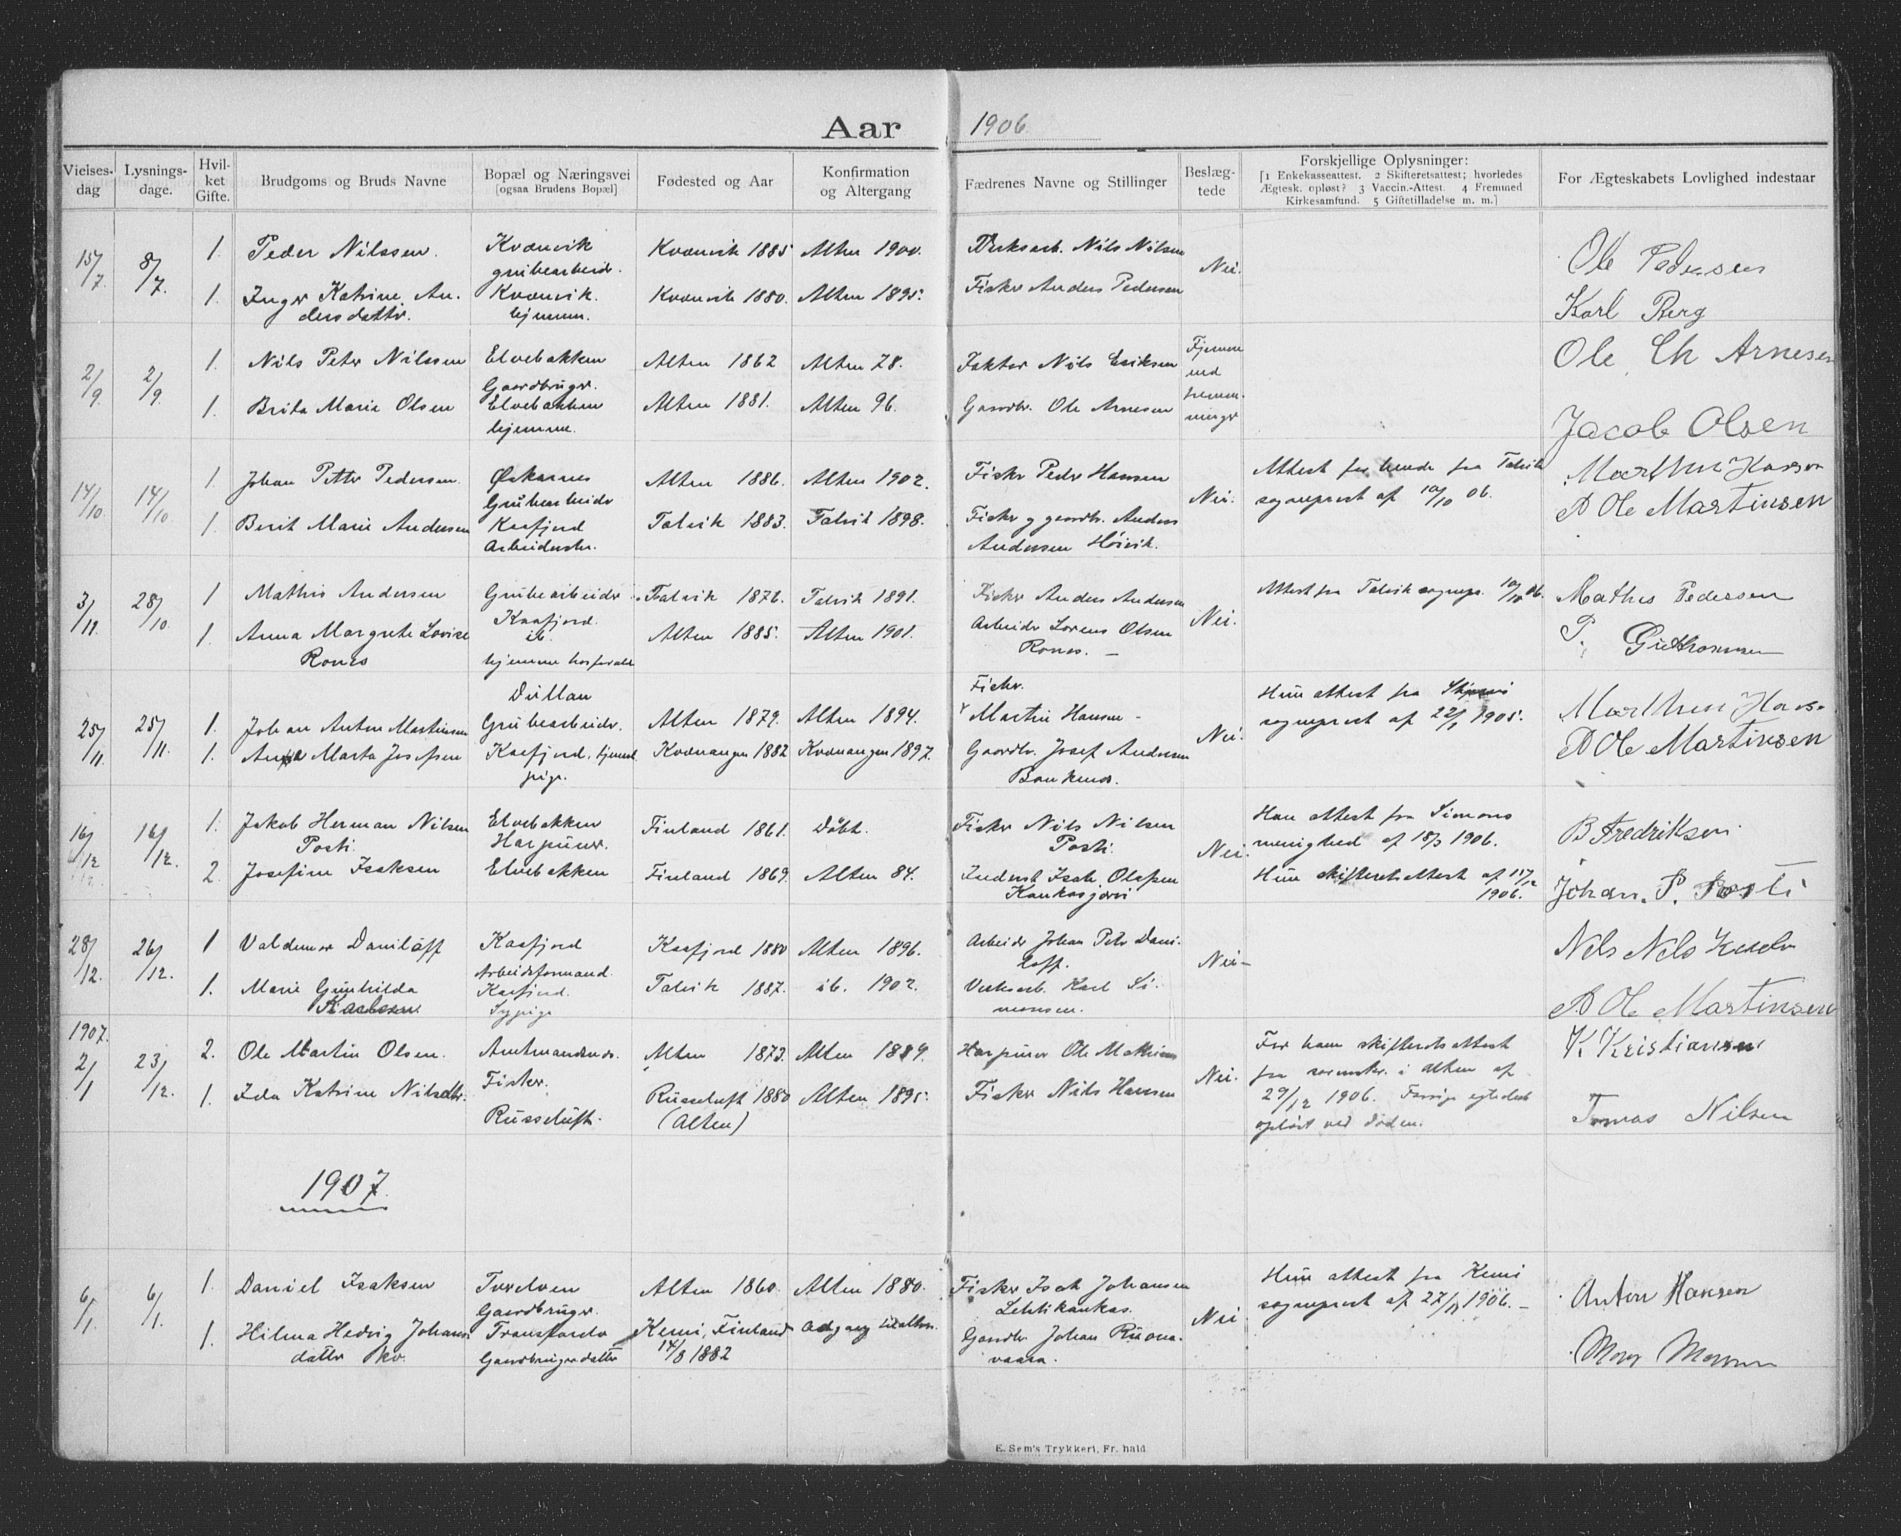 Aar 1906
Vielses-dag
Lysnings-dage.
Hvil-ket Gifte.
Brudgoms og Bruds Navne
Bopæl og Næringsvei
[ogsaa Brudens Bopæl]
Fødested og Aar
Konfirmation og Altergang
Fædrenes Navne og Stillinger
Beslæg-tede
Forskjellige Oplysninger:
[1 Enkekasseattest. 2 Skifteretsattest; hvorledes
Ægtesk. opløst? 3 Vaccin.-Attest. 4 Fremmed
Kirkesamfund. 5 Giftetilladelse m. m.]
For Ægteskabets Lovlighed indestaar
15/7 8/7 1. Peder Nilssen. Kvænvik Kvænvik 1885 Alten 1900. Nils Nilsen Nei. Ole Pedersen
grubearbeidr.
1. Inger Katrine An- Kvænvik. Kvænvik 1880. Alten 1895. Fisker Anders Pedersen Karl Berg
dersdattr. hjemme.
2/9 2/9 1. Nils Peter Nilssen Elvebakken Alten 1862 Alten 78. Faktor Nils Eriksen Fjerne Ole Ch Arnesen
Gaardbruger. ned
1. Brita Marie Olsen Elvebakken Alten 1881. Alten 96. Gaardbr. Ole Arnesen Jacob Olsen
hjemme.
14/10 14/10 1. Johan Petter Pedersen. Øskarnes Alten 1886. Alten 1902. Fisker Peder Hansen Nei. Attest for hende fra Talvik
Grubearbeidr sogneprest af 10/10 06.
1. Berit Marie Andersen Kaafjord Talvik 1883. Talvik 1898. Fisker g gaardbr. Anders A Ole Martinsen
Arbeiderske. Andersen Høivik.
3/11 28/10 1 Mathis Andersen Grubearbeidr Talvik 1872. Talvik 1891. Fisker Anders Andersen Nei. Attest fra Talvik sognepr. 10/10 06. Mathis Pedersen
Kaafjord.
1. Anna Margrete Lovise ib. Alten 1885. Alten 1901. Arbeider Lorens Olsen
Rones hjemme hos foræld Rones. —
25/11 25/11 1. Johan Anton Martinsen Grubearbeidr. Alten 1879. Alten 1894. Fisker. Nei. Hun attest fra
Martin Hansen - sogneprest af 22/1 1905.
1. Anna Marta Josefsen Kaafjord, hjemme Kvænangen 1882 Kvænangen 1897. Gaardbr. Josef Andersen A Ole Martinsen
pige.
16/12 16/12 1. Jakob Herman Nilsen Elvebakken Finland 1861. Døbt. Fisker Nils Nilsen Nei. Han attest fra Simons B Fredriksen
Posti Harpuner. Posti. menighed af 18/3 1906.
2. Josefine Isaksen Elvebakken Finland 1869. Alten 84. Inderst Isak Olafsen Hun skifteretsattest af 15/12
Kankasjærvi 1906. Johan. P. Posti
28/12 26/12 1 Valdemar Daniloff Kaafjord Kaafjord 1880 Alten 1896. Arbeidr Johan Petr Dani- Nei- Nels Nels
Arbeidsformand. loff.
1. Marie Gunhilda Kaafjord. Talvik 1887. ib. 1902. Verksarb. Karl Si-
Karlsen. Sypige monsen. A Ole Martinsen
1907.
2/1 23/12. 2. Ole Martin Olsen. Amtmandsnes. Alten 1873. Alten 1889. Harpuner Ole Mathisen Nei. For ham skifteretsattest K Kristiansen
Fisker. fra sorenskr. i Alten af
1. Ida Katrine Nilsdtr. Russeluft 1880 Alten 1895. Fisker Nils Hansen 29/12 1906. Forrige egteskab
Russeluft. (Alten) opløst ved døden. Tomas Nilsen
1907.
6/1 6/1. 1. Daniel Isaksen Tverelven Alten 1860. Alten 1880. Fisker Isak Johansen Nei. Hun attest fra Kemi Anton Hansen
Gaardbruger. Lehtikankas. sogneprest af 27/11 1906. —
1. Hilma Hedvig Johans- Transfarelv Kemi, Finland Adgang til altrs. Gaardbr Johan Ruona-
datter kv. Gaardbrugerdatter 14/8 1882 vaara.
E. Sem's Trykkeri, Fr. hald